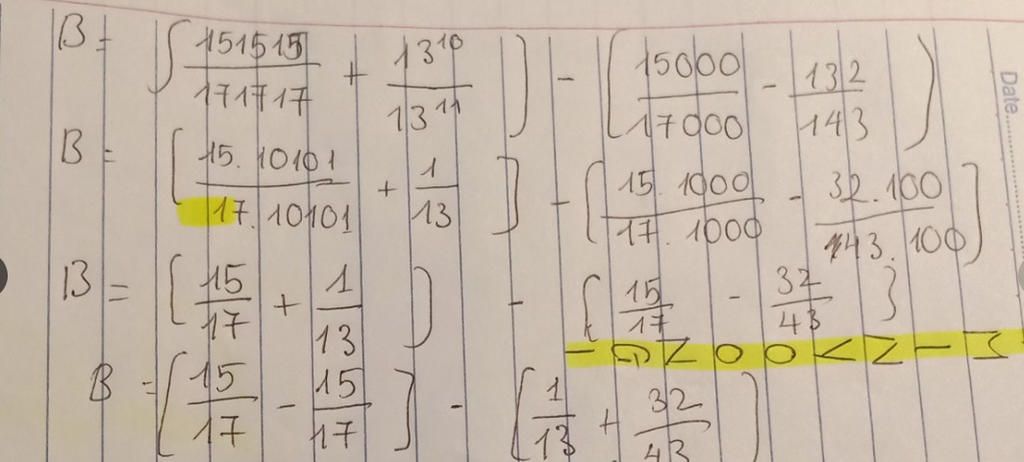 B = [151515/171717 + 13^10/13^11] - (15000/17000 - 132/143)
Date
B = [15.10101/17.10101 + 1/13] - [15.1000/17.1000 - 32.100/143.100]
B = [15/17 + 1/13] - [15/17 - 32/43]
B = [15/17 - 15/17] - [1/13 + 32/43]